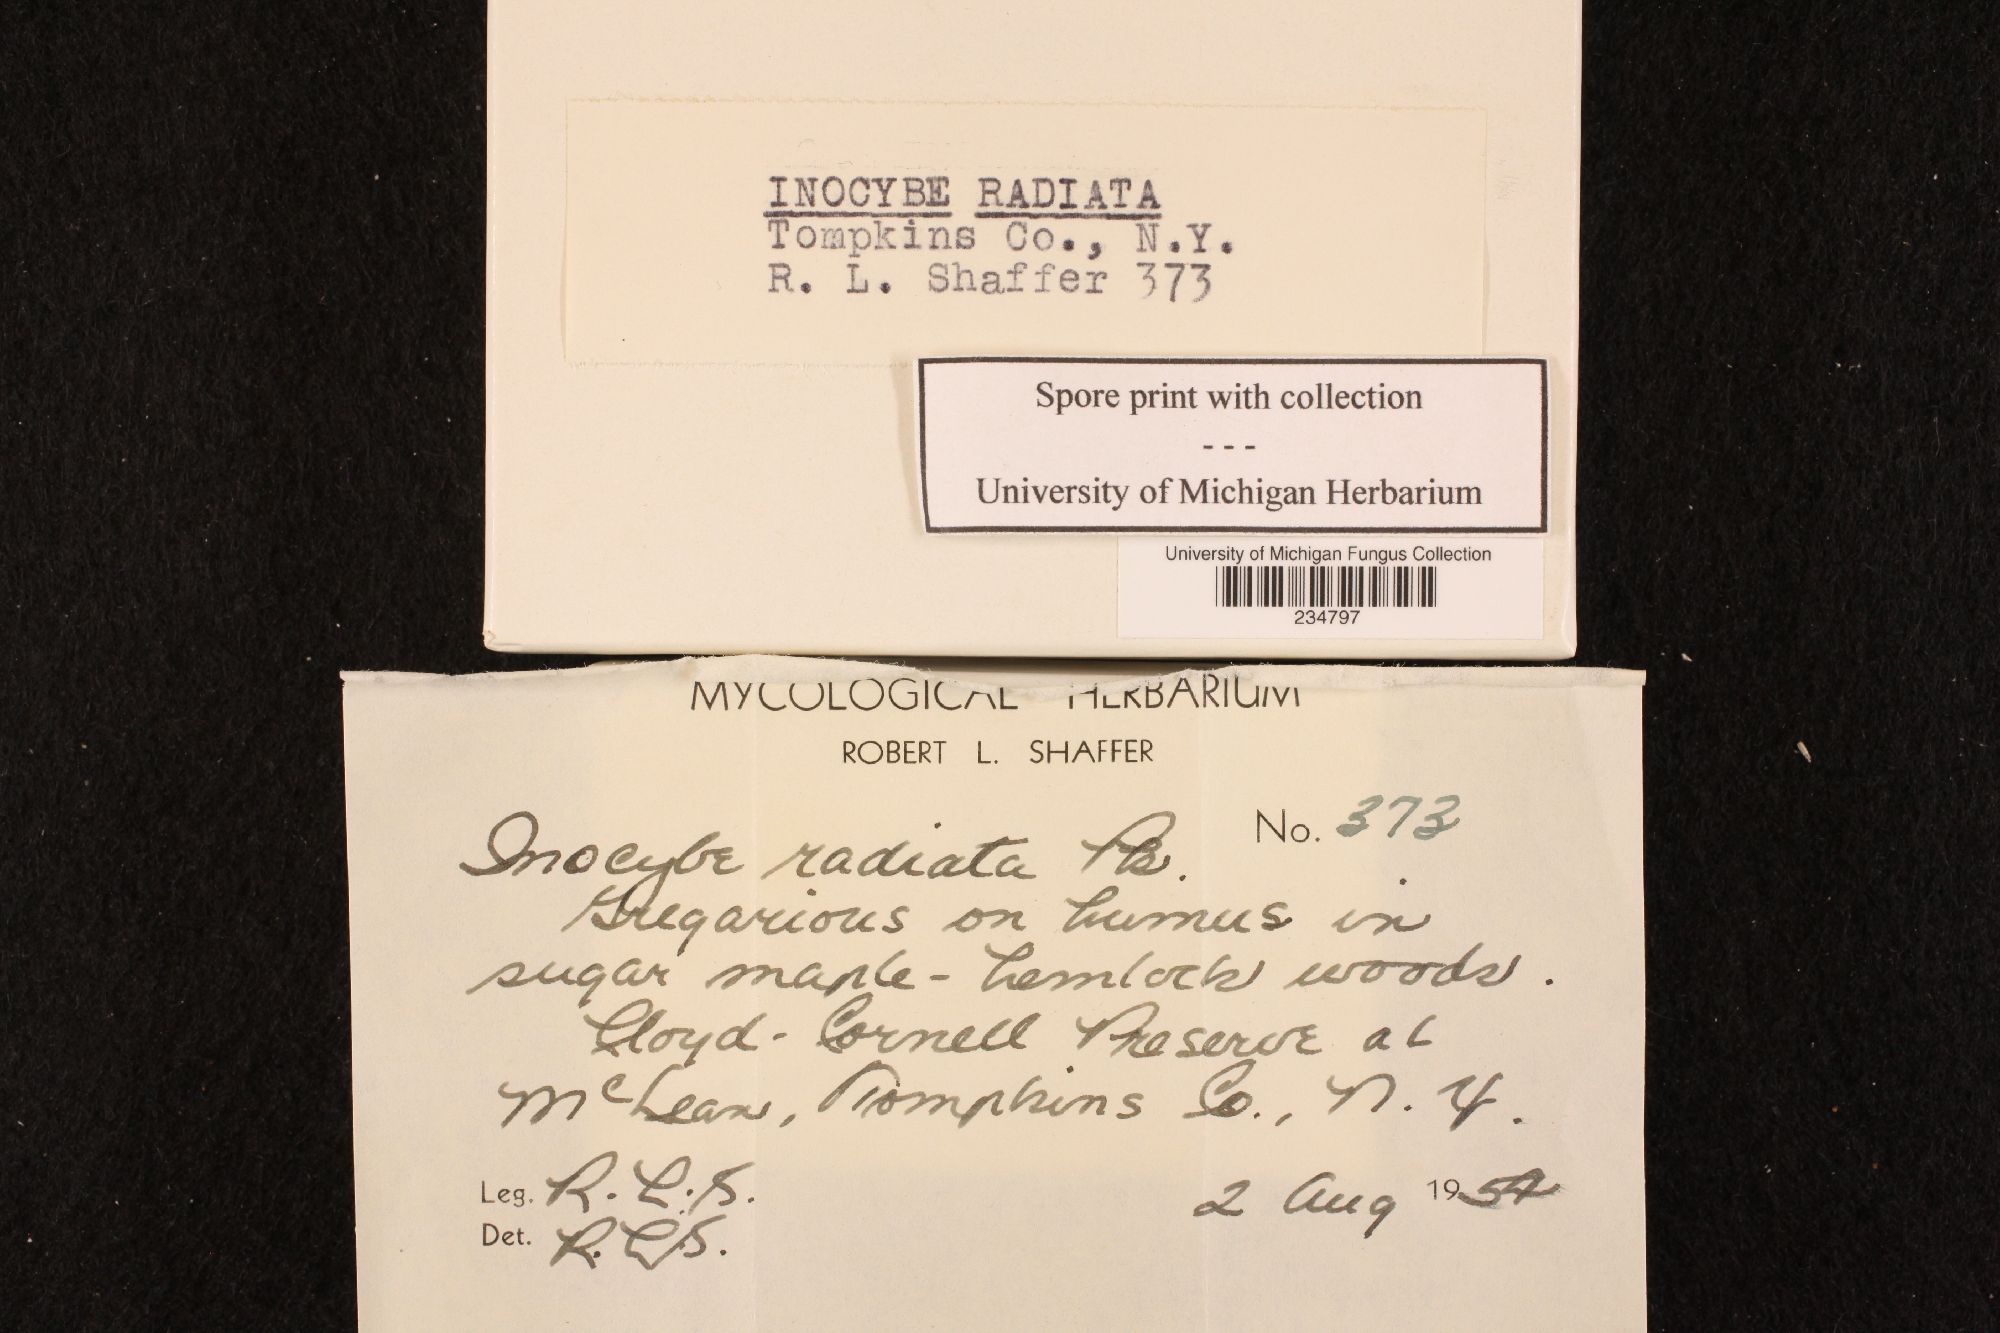 INOCYBE RADIATA
Tompkins Co., N.Y.
R. L. Shaffer 373
Spore print with collection
---
University of Michigan Herbarium
University of Michigan Fungus Collection
234797
MYCOLOGICAL HERBARIUM
ROBERT L. SHAFFER
No. 373
Inocybe radiata Pk.
Gregarious on humus in
sugar maple-hemlock woods.
Lloyd-Cornell Preserve at
McLean, Tompkins Co., N. Y.
Leg. R. L. S.
2 Aug 1954
Det. R. L. S.